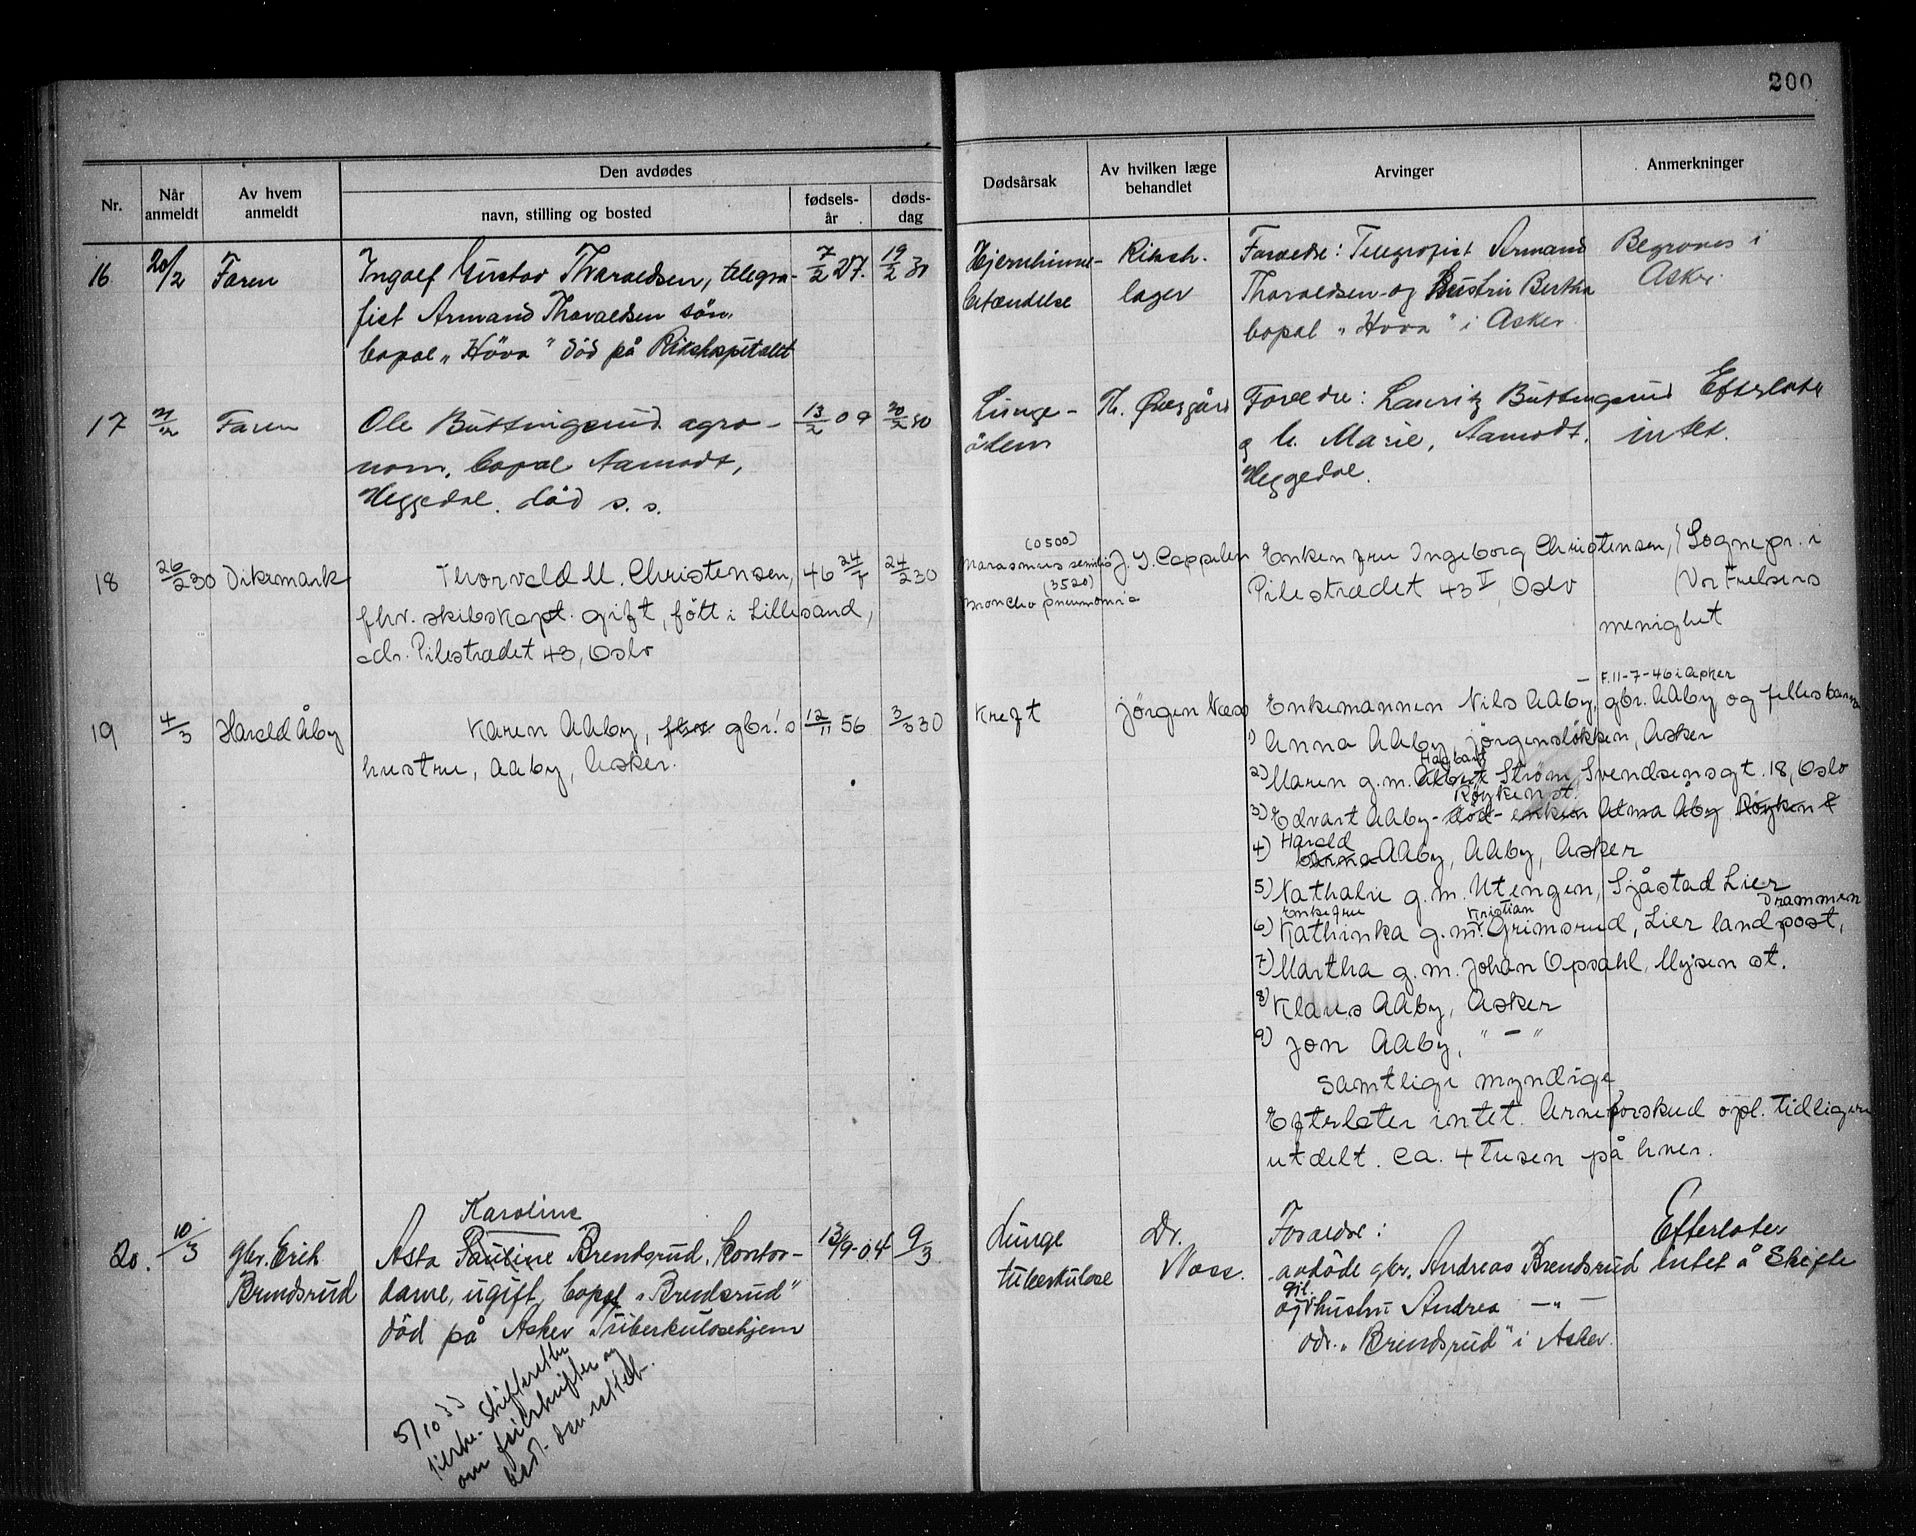 200
Nr.
Når anmeldt
Av hvem anmeldt
Den avdødes
navn, stilling og bosted
fødsels-år
døds-dag
Dødsårsak
Av hvilken læge behandlet
Arvinger
Anmerkninger
16 20/2 Faren
Ingolf Gustav Thoraldsen, telegra-
fist Armand Thoraldsen sön.
bopæl „Höva" död på Rikshospitalet
7/2 27. 19/2 30
Hjernehinne-
betændelse
Riksh.
læger
Forældre: Telegrafist Armand
Thoraldsen og hustru Bertha
bopæl „Hova" i Asker
Begraves i
Asker.
17 21/2 Faren
Ole Buttingsrud agro-
nom, bopæl Aamodt,
Heggedal. död s. s.
13/2 09 20/2 30
Lunge-
ödem
Th. Østgård
Foreldre: Lauritz Buttingsrud
og h. Marie, Aamodt,
Heggedal.
Efterlater
intet.
18 26/2 30 Dikemark
Thorvald M. Christensen,
fhv. skibskapt. gift, fött i Lillesand,
adr. Pilestrædet 43, Oslo
46 24/7 24/2 30
(0500)
Marasmus senilis
(3520)
Broncho pneumonia
J. S. Cappelen
Enken fru Ingeborg Christensen,
Pilestrædet 43 II, Oslo
Sognepr. i
Vor Frelsers
menighet
19 4/3 Harald Åby
Karen Aaby, fhv. gbr.'s
hustru, Aaby, Asker.
12/11 56 3/3 30
Kreft
Jörgen Næss
F. 11-7-46 i Asker
Enkemannen Nils Aaby, gbr. Aaby og fellesbarna
1) Anna Aaby, Jörgensløkken, Asker
Hagbart
2) Maren g.m. Albert Strøm, Svendsensgt. 18, Oslo
Röyken st.
3) Edvart Aaby - död - enken Alma Åby Röyken &
Harald
4) barna Aaby, Aaby, Asker
5) Nathalie g.m. Utengen, Sjåstad Lier
Enkefru Kristian Drammen
6) Kathinka g.m. Grimsrud, Lier landpost,
7) Martha g.m. Johan Opsahl, Mysen st.
8) Klaus Aaby, Asker
9) Jon Aaby, " — "
Samtlige myndige
Efterlater intet. Arveforskud opl. tidligere
utdelt. ca. 4 tusen på hver.
20. 10/3 gbr. Erik
Brendsrud
Karoline
Asta Pauline Brendsrud, Kontor-
dame, ugift, bopæl „Brendsrud"
död på Asker Tuberkulosehjem
13/9-04 9/3
Lunge
tuberkulose
Dr.
Næss.
Foreldre:
avdöde gbr. Andreas Brendsrud
gjl.
og hustru Andrea —"—
adr. „Brendsrud" i Asker.
Efterlater
intet å Skifte
5/10 33
Skifteretten
om feilskriften og
bedt den rettet.